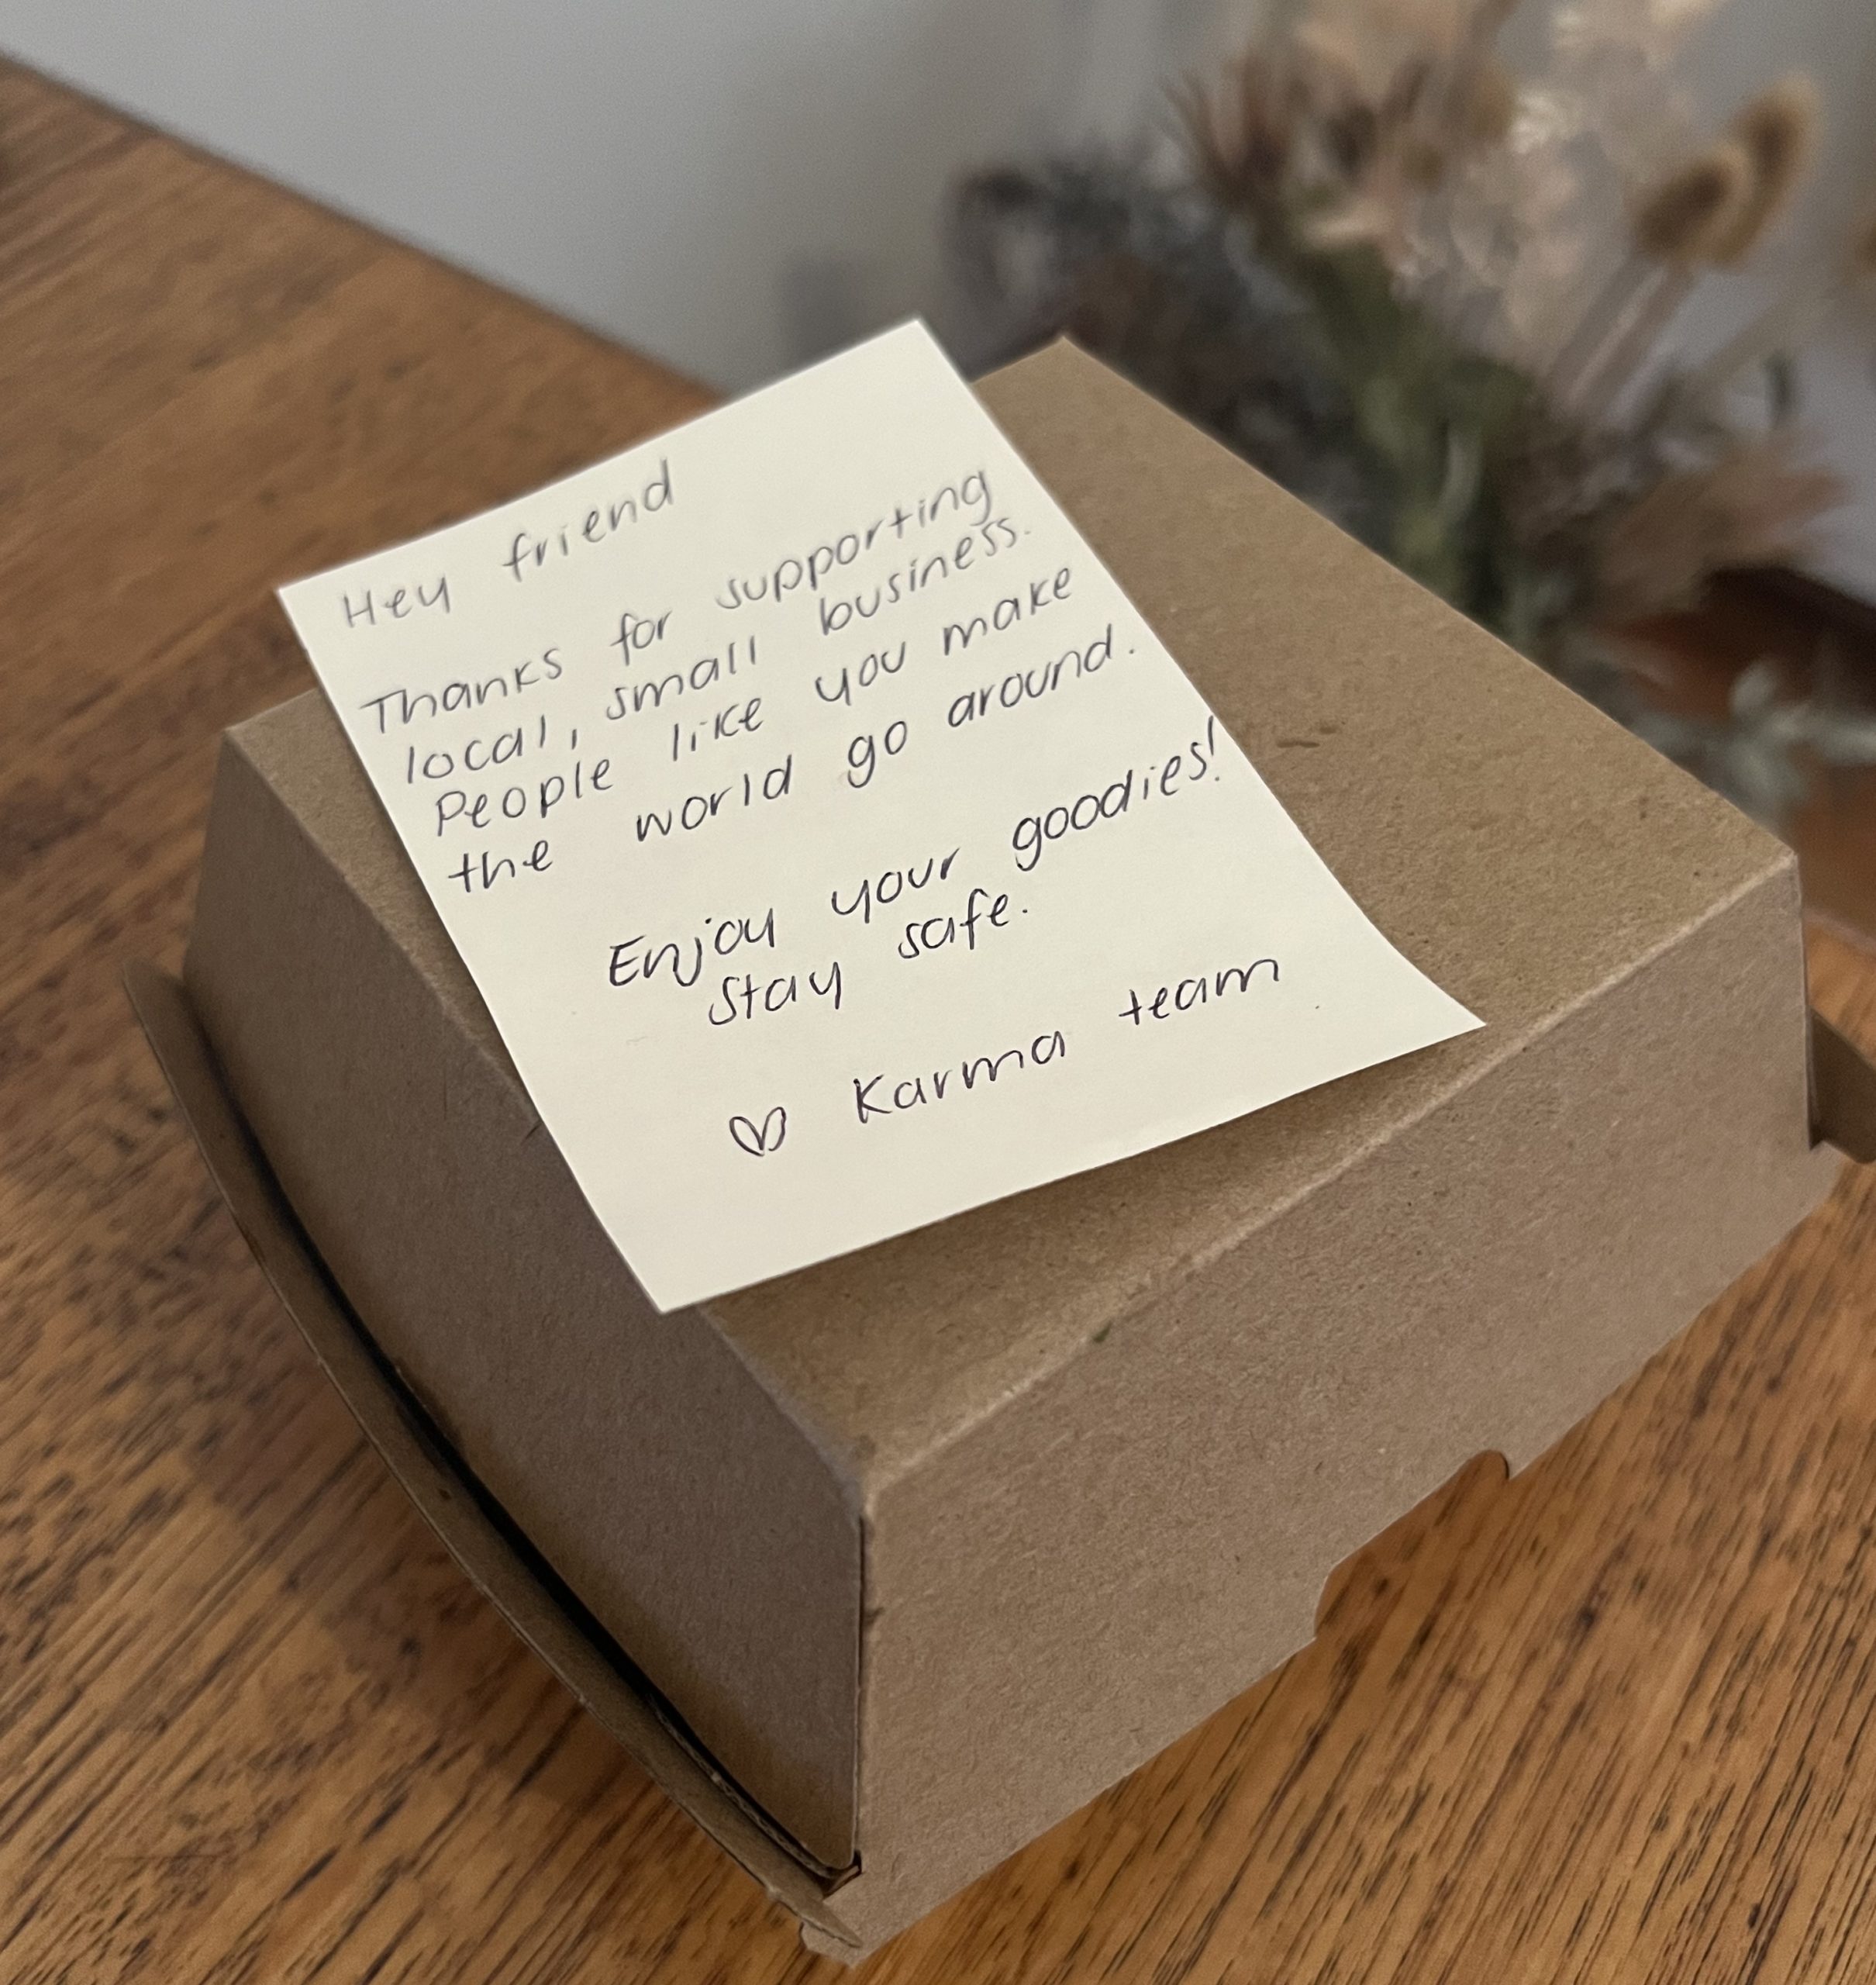 Hey friend
Thanks for supporting
local, small business.
People like you make
the world go around.
Enjoy your goodies!
Stay safe.
♡ Karma team